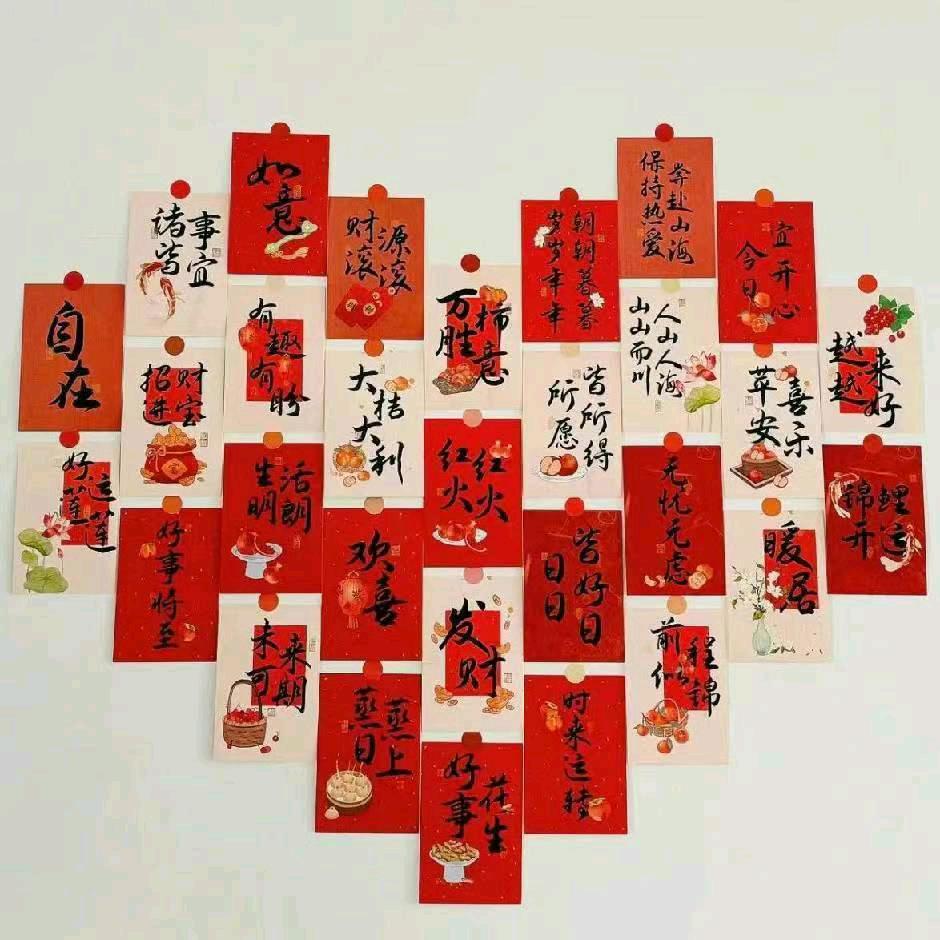 如意
奔赴山海
保持热爱
诸事
皆宜
财源
滚滚
朝朝暮暮
岁岁年年
今日
宜开心
自在
有趣
有盼
万柿
胜意
人山人海
山山而川
越来
越好
招财
进宝
大桔
大利
所愿
皆所得
苹安
喜乐
好运
莲莲
生活
明朗
红红
火火
无忧无虑
锦鲤
开运
好事将至
欢喜
日日
皆好日
暖居
未来
可期
发财
前程
似锦
蒸蒸
日上
时来运转
好事
花生